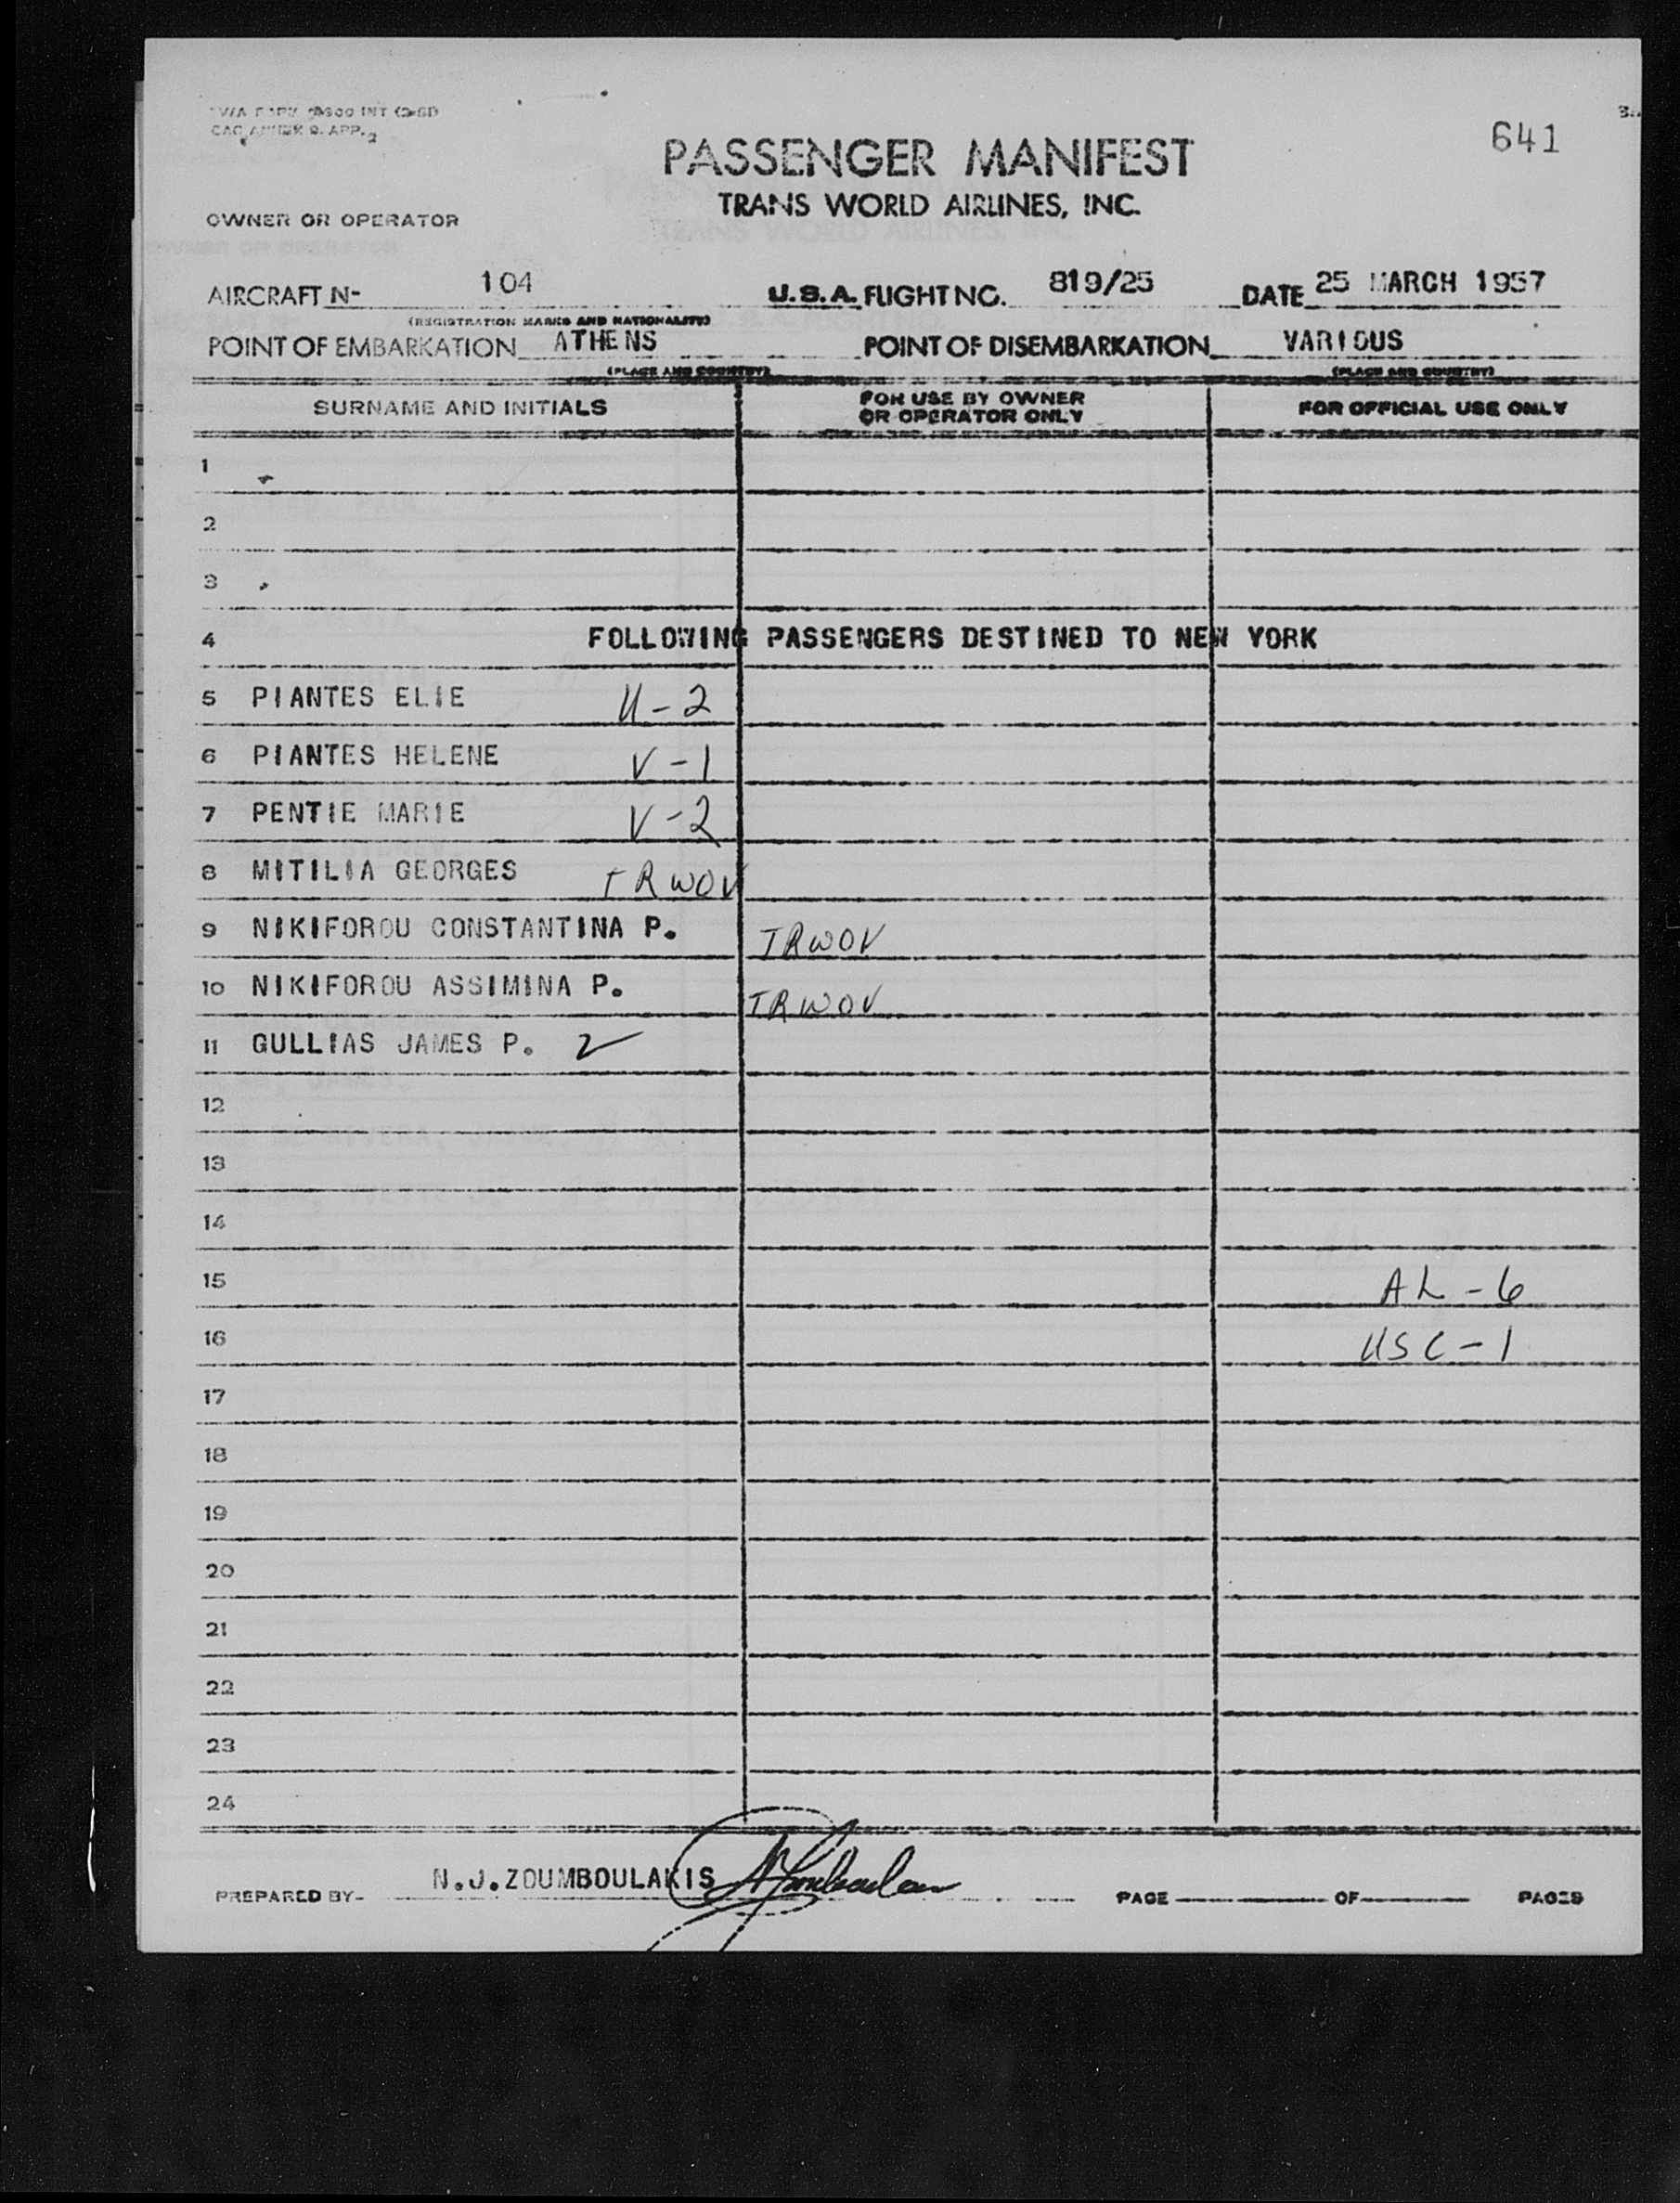 641
PASSENGER MANIFEST
TRANS WORLD AIRLINES, INC.
OWNER OR OPERATOR
AIRCRAFT N- 104 U.S.A. FLIGHT NO. 819/25 DATE 25 MARCH 1957
(REGISTRATION MARKS AND NATIONALITY)
POINT OF EMBARKATION ATHENS POINT OF DISEMBARKATION VARIOUS
(PLACE AND COUNTRY) (PLACE AND COUNTRY)
SURNAME AND INITIALS FOR USE BY OWNER OR OPERATOR ONLY FOR OFFICIAL USE ONLY
1
2
3
4 FOLLOWING PASSENGERS DESTINED TO NEW YORK
5 PIANTES ELIE U-2
6 PIANTES HELENE V-1
7 PENTIE MARIE V-2
8 MITILIA GEORGES TRWOV
9 NIKIFOROU CONSTANTINA P. TRWOV
10 NIKIFOROU ASSIMINA P. TRWOV
11 GULLIAS JAMES P.
12
13
14
15 AL-6
16 USC-1
17
18
19
20
21
22
23
24
PREPARED BY- N.J.ZOUMBOULAKIS PAGE OF PAGES